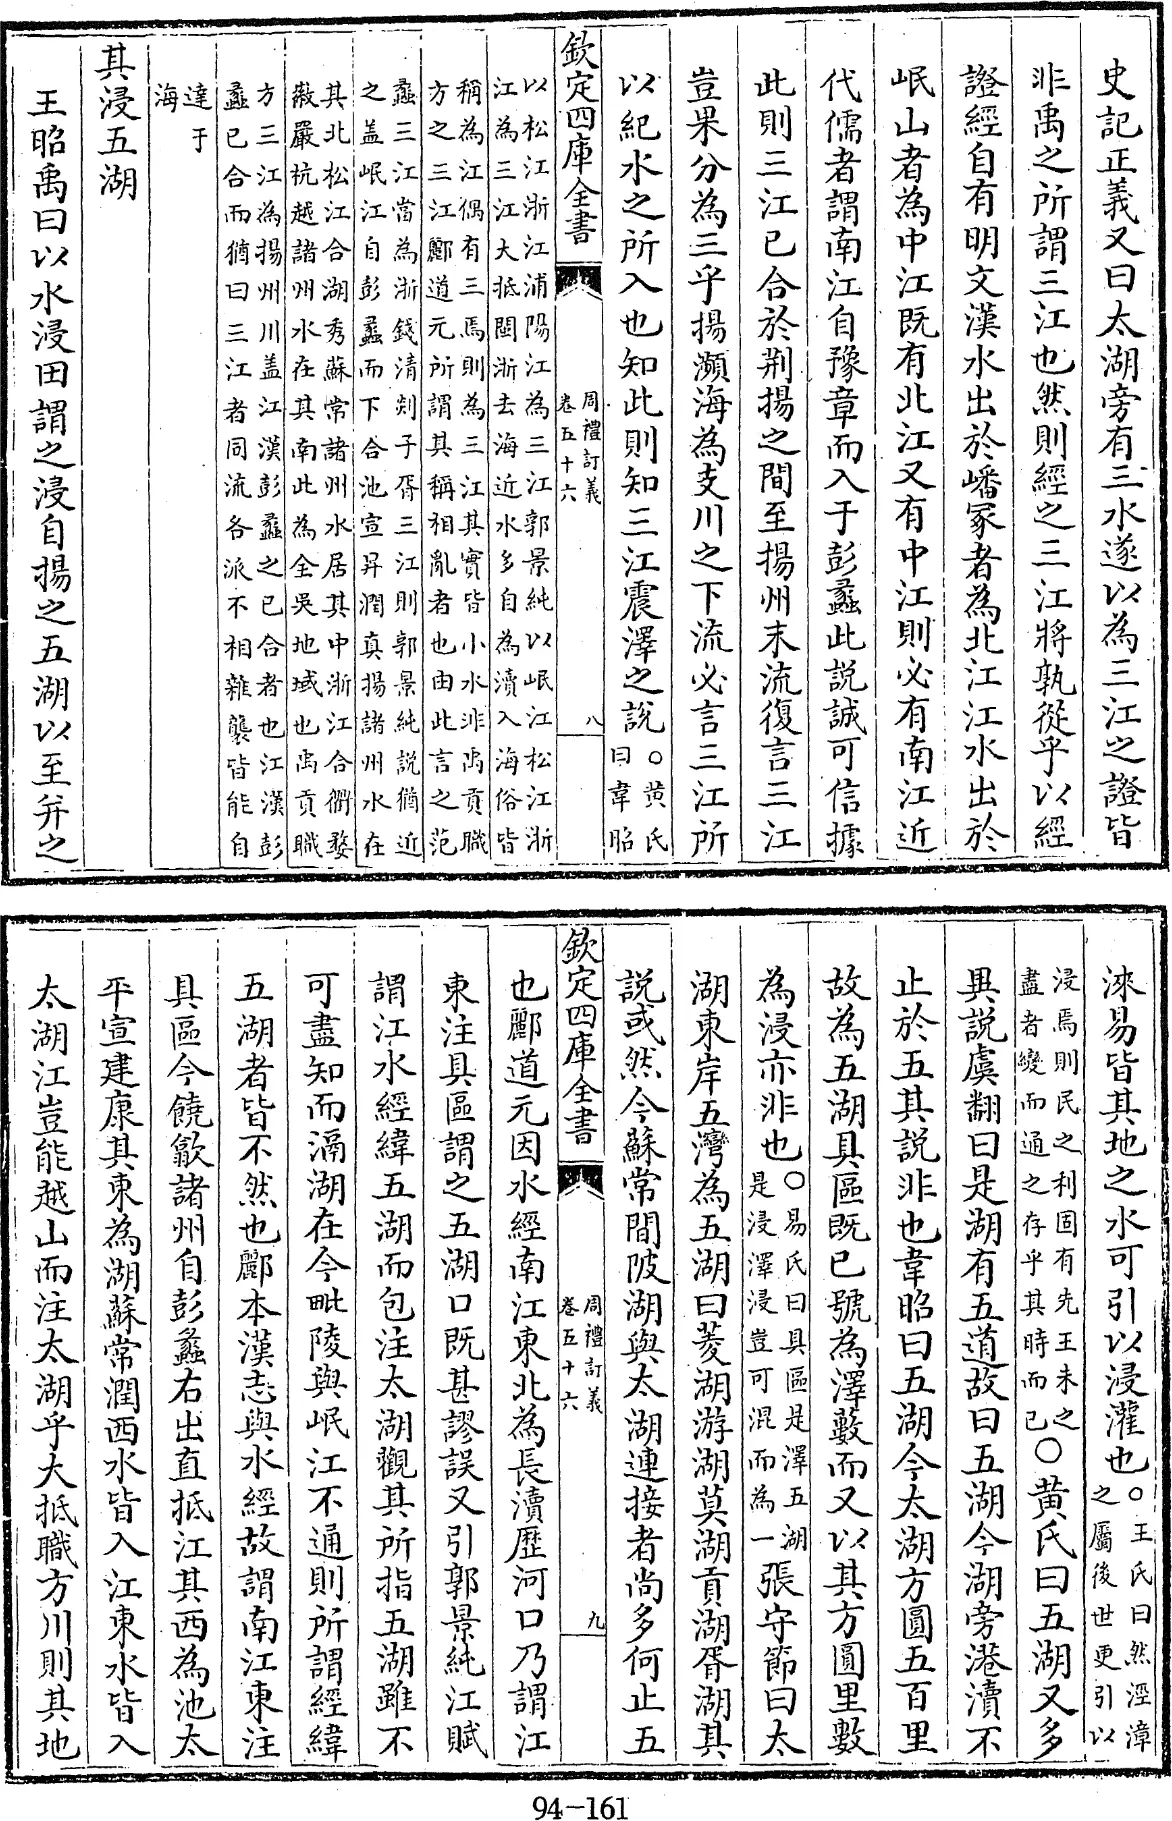 史記正義又曰太湖旁有三水遂以為三江之證皆
非禹之所謂三江也然則經之三江將孰從乎以經
證經自有明文漢水出於嶓冢者為北江江水出於
岷山者為中江既有北江又有中江則必有南江近
代儒者謂南江自豫章而入于彭蠡此説誠可信據
此則三江已合於荆揚之間至揚州末流復言三江
豈果分為三乎揚瀕海為支川之下流必言三江所
以紀水之所入也知此則知三江震澤之説○黄氏
曰韋昭
欽定四庫全書
周禮訂義
卷五十六
八
以松江浙江浦陽江為三江郭景純以岷江松江浙
江為三江大抵閩浙去海近水多自為瀆入海俗皆
稱為江偶有三焉則為三江其實皆小水非禹貢職
方之三江酈道元所謂其稱相亂者也由此言之范
蠡三江當為浙錢清剡子胥三江則郭景純説猶近
之盖岷江自彭蠡而下合池宣昇潤真揚諸州水在
其北松江合湖秀蘇常諸州水居其中浙江合衢婺
㡿嚴杭越諸州水在其南此為全吳地域也禹貢職
方三江為揚州川盖江漢彭蠡之已合者也江漢彭
蠡已合而猶曰三江者同流各派不相雜襲皆能自
達于
海
其浸五湖
王昭禹曰以水浸田謂之浸自揚之五湖以至并之
淶易皆其地之水可引以浸灌也○王氏曰然涇漳
之屬後世更引以
浸焉則民之利固有先王未之
盡者變而通之存乎其時而已○黄氏曰五湖又多
異説虞翻曰是湖有五道故曰五湖今湖旁港瀆不
止於五其説非也韋昭曰五湖今太湖方圓五百里
故為五湖具區既已號為澤藪而又以其方圓里數
為浸亦非也○易氏曰具區是澤五湖
是浸澤浸豈可混而為一張守節曰太
湖東岸五灣為五湖曰菱湖游湖莫湖貢湖胥湖其
説或然今蘇常間陂湖與太湖連接者尚多何止五
欽定四庫全書
周禮訂義
卷五十六
九
也酈道元因水經南江東北為長瀆歴河口乃謂江
東注具區謂之五湖口既甚謬誤又引郭景純江賦
謂江水經緯五湖而包注太湖觀其所指五湖雖不
可盡知而滆湖在今毗陵與岷江不通則所謂經緯
五湖者皆不然也酈本漢志與水經故謂南江東注
具區今饒歙諸州自彭蠡右出直抵江其西為池太
平宣建康其東為湖蘇常潤西水皆入江東水皆入
太湖江豈能越山而注太湖乎大抵職方川則其地
94-161